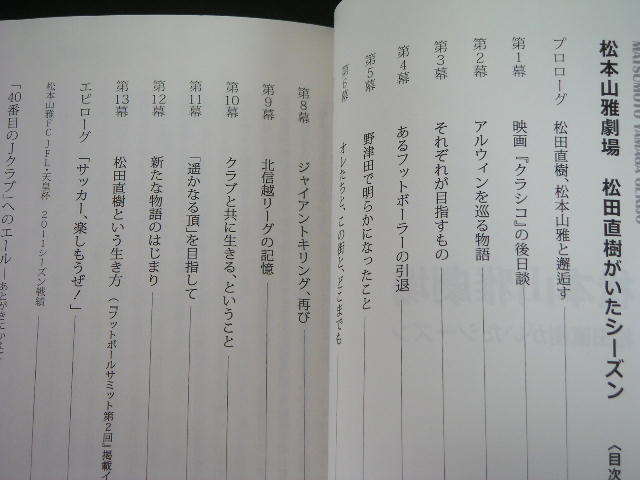 松本山雅劇場　松田直樹がいたシーズン 〈目次
プロローグ　松田直樹、松本山雅と邂逅す
第1幕　映画『クラシコ』の後日談
第2幕　アルウィンを巡る物語
第3幕　それぞれが目指すもの
第4幕　あるフットボーラーの引退
第5幕　野津田で明らかになったこと
第6幕　オレたちと、この街と、どこまでも
第8幕　ジャイアントキリング、再び
第9幕　北信越リーグの記憶
第10幕　クラブと共に生きる、ということ
第11幕　「遥かなる頂」を目指して
第12幕　新たな物語のはじまり
第13幕　松田直樹という生き方（『フットボールサミット第2回』掲載イ
エピローグ　「サッカー、楽しもうぜ！」
松本山雅FC JFL・天皇杯　2011シーズン戦績
「40番目のJクラブ」へのエール―あとがきにかえて